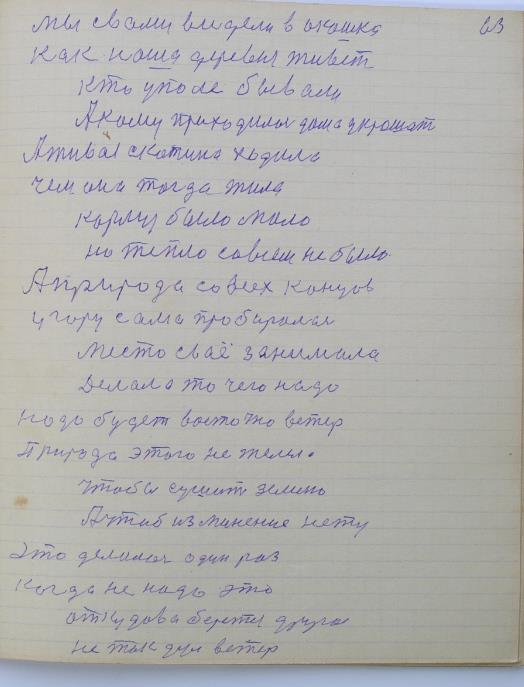 63
мы свами видели в окошко
Как наша деревня живёт
Кто уполе бывали
Акому приходилос дома украшат
Аживая скатина ходила
чем она тогда жила
корму было мало
но тепло совсем не было
Априрода совсех концов
угору сама пробиралас
место своё занимала
Делала то чего надо
надо будет восточно ветер
Природа этого не
чтобы сушит землю
нету
Это делалос один раз
Когда не надо это
откудова беретса другое
не так дул ветер